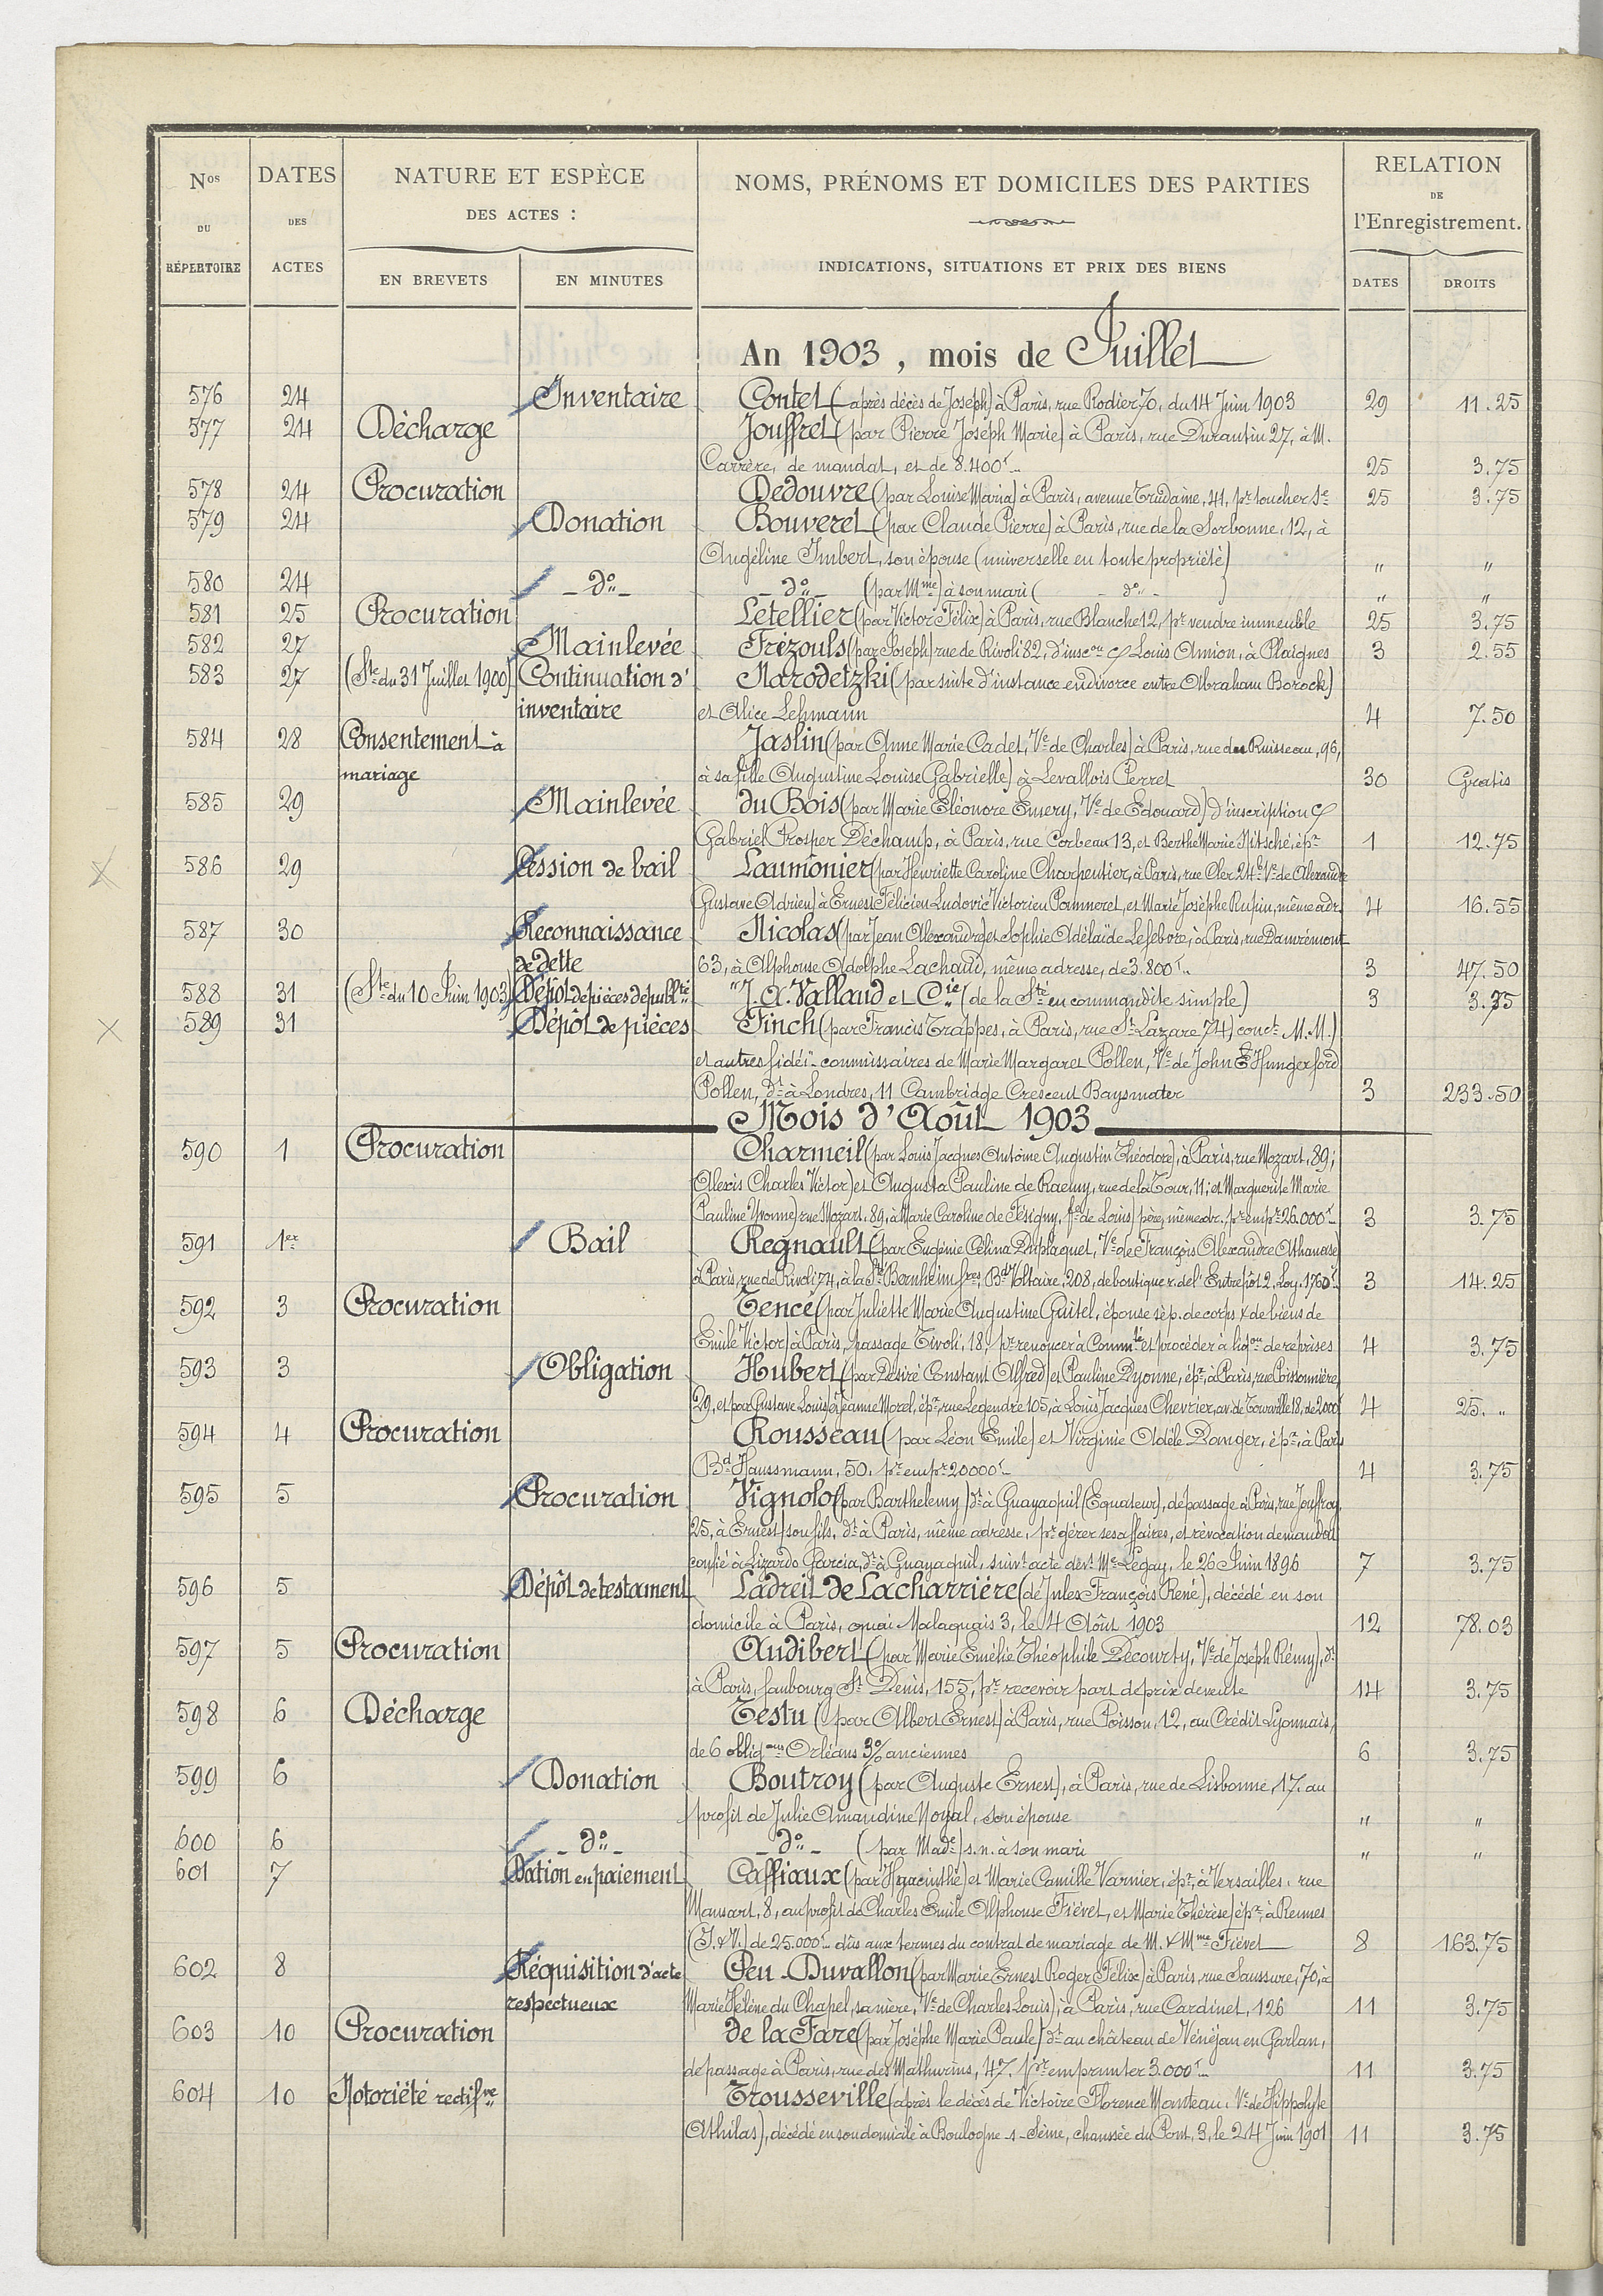 Nos DU RÉPERTOIRE
DATES DES ACTES
NATURE ET ESPÈCE DES ACTES :
EN BREVETS
EN MINUTES
NOMS, PRÉNOMS ET DOMICILES DES PARTIES
INDICATIONS, SITUATIONS ET PRIX DES BIENS
RELATION DE l'Enregistrement.
DATES
DROITS
An 1903, mois de Juillet
576 24 Inventaire Contet (après décès de Joseph) à Paris, rue Rodier 70, du 14 Juin 1903 29 11.25
577 24 Décharge Jouffret (par Pierre Joseph Marie) à Paris, rue Durantin 27, à M.
Carrère, de mandat, et de 8.400f 25 3.75
578 24 Procuration Dedouvre (par Louise Maria) à Paris, avenue Trudaine, 41, pr toucher Se 25 3.75
579 24 Donation Bouveret (par Claude Pierre) à Paris, rue de la Sorbonne, 12, à
Angéline Imbert, son épouse (universelle en toute propriété) " "
580 24 - do - - do - (par Mme) à son mari ( - do - ) " "
581 25 Procuration Letellier (par Victor Félix) à Paris, rue Blanche 12, pr vendre immeuble 25 3.75
582 27 Mainlevée Frézouls (par Joseph) rue de Rivoli 82, d'inscon c/ Louis Amion, à Plaignes 3 2.55
583 27 (Ste du 31 Juillet 1900) Continuation d' Narodetzki (par suite d'instance en divorce entre Abraham Borock)
inventaire et Alice Lehmann 4 7.50
584 28 Consentement à Jaslin (par Anne Marie Cadet, Ve de Charles) à Paris, rue du Ruisseau, 96,
mariage à sa fille Augustine Louise Gabrielle) à Levallois Perret 30 Gratis
585 29 Mainlevée du Bois (par Marie Eléonore Emery, Ve de Edouard) d'inscription c/
Gabriel Prosper Déchamp, à Paris, rue Corbeau 13, et Berthe Marie Nitsché, épx 1 12.75
586 29 Cession de bail Laumônier (par Henriette Caroline Charpentier, à Paris, rue Cler 24b, Ve de Alexandre
Gustave Adrien) à Ernest Félicien Ludovic Victorien Pommeret, et Marie Josèphe Rupin, même adr. 4 16.55
587 30 Reconnaissance Nicolas (par Jean Alexandre) et Sophie Adélaïde Lefébvre, à Paris, rue Damrémont
de dette 63, à Alphonse Adolphe Lachaud, même adresse, de 3.800f 3 47.50
588 31 (Ste du 10 Juin 1903) Dépôt de pièces de publté "J. A. Vallaud et Cie (de la Sté en commandite simple) 3 3.75
589 31 Dépôt de pièces Finch (par Francis Trappes, à Paris, rue St Lazare 74) conct M.M.)
et autres fidéi-commissaires de Marie Margaret Pollen, Ve de John Hungerford
Pollen, dt à Londres, 11 Cambridge Crescent Bayswater 3 233.50
Mois d'Août 1903
590 1 Procuration Charmeil (par Louis Jacques Antoine Augustin Théodore), à Paris, rue Mozart, 89;
Alexis Charles Victor) et Augusta Pauline de Raemy, rue de la Tour, 11; et Marguerite Marie
Pauline Yvonne) rue Mozart, 89, à Marie Caroline de Fésigny, fe de Louis) père, même adr., pr empr 26.000f 3 3.75
591 1er Bail Regnault (par Eugénie Célina Duplaquet, Ve de François Alexandre Athanase)
à Paris, rue de Rivoli 74, à la Sté Bernheim fres, Bd Voltaire, 208, de boutique r. de l'Entrepôt 2. Loy. 1760f 3 14.25
592 3 Procuration Tencé (par Juliette Marie Augustine Guitel, épouse sép. de corps & de biens de
Emile Victor) à Paris, passage Tivoli, 18, pr renoncer à Commté et procéder à liqon de reprises 4 3.75
593 3 Obligation Hubert (par Désiré Constant Alfred) et Pauline Dyonne, épx, à Paris, rue Poissonnière
29, et par Gustave Louis) et Jeanne Morel, épx, rue Legendre 105, à Louis Jacques Chevrier, av. de Tourville 18, de 2000f 4 25. "
594 4 Procuration Rousseau (par Léon Emile) et Virginie Adèle Danger, épx, à Paris
Bd Haussmann, 50, pr empr 20000f 4 3.75
595 5 Procuration Vignolo (par Barthelemy) dt à Guayaquil (Equateur), de passage à Paris, rue Jouffroy,
25, à Ernest) son fils, dt à Paris, même adresse, pr gérer ses affaires, et révocation de mandat
confié à Lizardo Garcia, dt à Guayaquil, suivt acte devt Me Legay, le 26 Juin 1896 7 3.75
596 5 Dépôt de testament Ladreit de Lacharrière (de Jules François René), décédé en son
domicile à Paris, quai Malaquais 3, le 4 Août 1903 12 78.03
597 5 Procuration Audibert (par Marie Emélie Théophile Decourty, Ve de Joseph Rémy), dt
à Paris, faubourg St Denis, 155, pr recevoir part de prix de vente 14 3.75
598 6 Décharge Testu (par Albert Ernest) à Paris, rue Poisson, 12, au Crédit Lyonnais,
de 6 obligons Orléans 3% anciennes 6 3.75
599 6 Donation Boutroy (par Auguste Ernest), à Paris, rue de Lisbonne, 17, au
profit de Julie Amandine Noyal, son épouse " "
600 6 - do - - do - (par Made) s.n. à son mari " "
601 7 Dation en paiement Caffiaux (par Hyacinthe) et Marie Camille Varnier, épx, à Versailles, rue
Mansart, 8, au profit de Charles Emile Alphonse Fiévet, et Marie Thérèse) épx, à Rennes
(I. & V.) de 25.000f dûs aux termes du contrat de mariage de M. & Mme Fiévet 8 163.75
602 8 Réquisition d'acte Peu-Duvallon (par Marie Ernest Roger Félix) à Paris, rue Saussure, 70, à
respectueux Marie Hélène du Chapel, sa mère, Ve de Charles Louis), à Paris, rue Cardinet, 126 11 3.75
603 10 Procuration de la Fare (par Josèphe Marie Paule) dt au château de Vénéjan en Garlan,
de passage à Paris, rue des Mathurins, 47, pr emprunter 3.000f 11 3.75
604 10 Notoriété rectifve Trousseville (après le décès de Victoire Florence Manteau, Ve de Hippolyte
Athilas), décédé en son domicile à Boulogne-s-Seine, chaussée du Pont, 3, le 24 Juin 1901 11 3.75